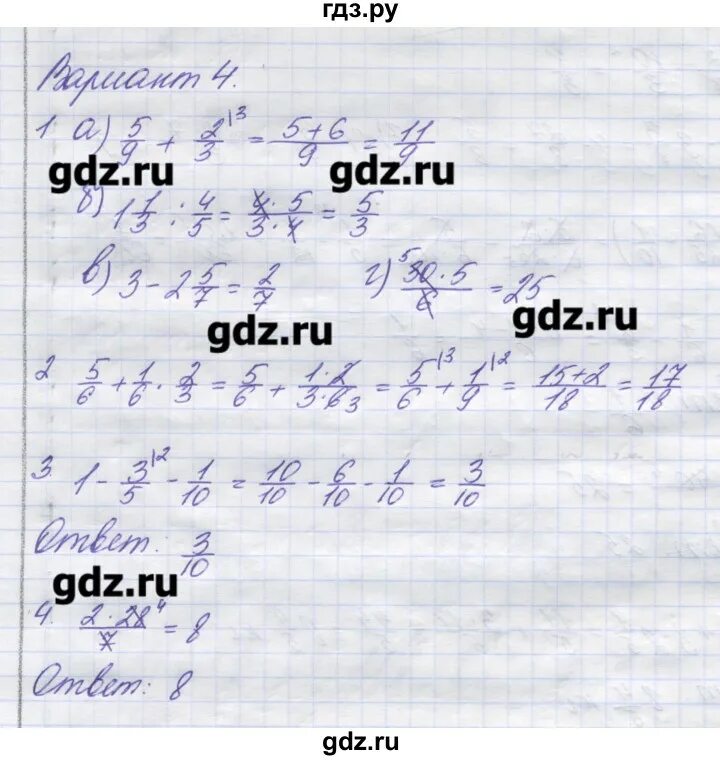 гдз.ру
Вариант 4.
1 а) 5/9 + 2/3 \3 = (5+6)/9 = 11/9
gdz.ru gdz.ru
б) 1 1/3 : 4/5 = (4·5)/(3·4) = 5/3
в) 3 - 2 5/7 = 2/7 г) 5 (30·5)/6 = 25
gdz.ru gdz.ru
2. 5/6 + 1/6 · 2/3 = 5/6 + (1·2)/(3·6 3) = 5/6 \3 + 1/9 \2 = (15+2)/18 = 17/18
3. 1 - 3/5 \2 - 1/10 = 10/10 - 6/10 - 1/10 = 3/10
Ответ: 3/10
gdz.ru
4. (2·28 4)/7 = 8
Ответ: 8
gdz.ru